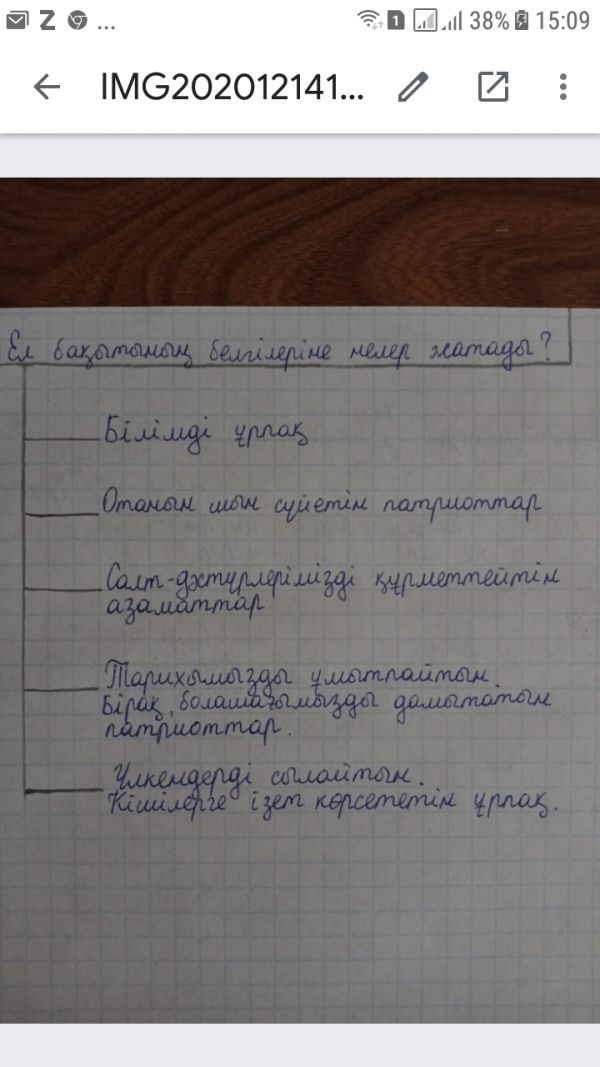 Z ... 1 38% 15:09
IMG202012141...
Ел бақытының белгілеріне нелер жатады?
Білімді ұрпақ
Отанын шын сүйетін патриоттар
Салт-дәстүрлерімізді құрметтейтін
азаматтар
Тарихымызды ұмытпайтын.
Бірақ, болашағымызды дамытатын
патриоттар.
Үлкендерді сылайтын.
Кішілерге ізет көрсететін ұрпақ.